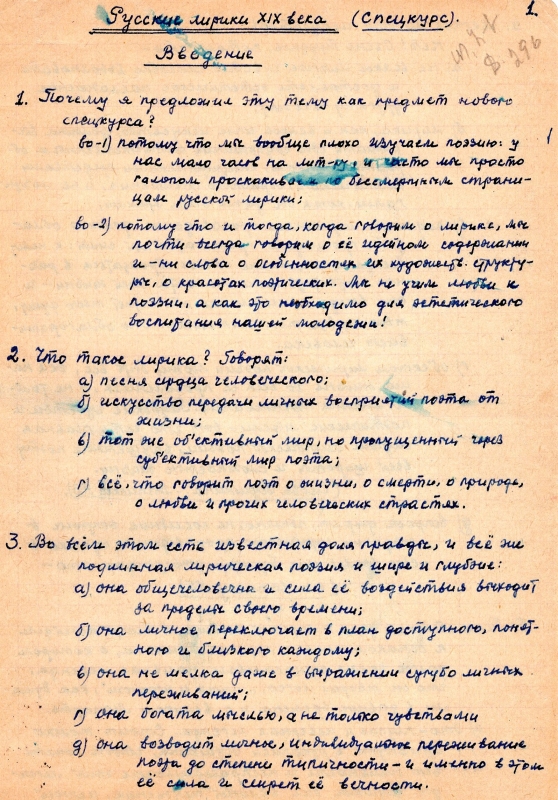 Русские лирики XIX века (Спецкурс).
1.
Введение
1. Почему я предложил эту тему как предмет нового
спецкурса?
во-1) потому что мы вообще плохо изучаем поэзию: у
нас мало часов на лит-ру, и часто мы просто
галопом проскакиваем по бессмертным страни-
цам русской лирики;
во-2) потому что и тогда, когда говорим о лирике, мы
почти всегда говорим о её идейном содержании
и – ни слова о особенностях их художеств. структу-
ры, о красотах поэтических. Мы не учим любви к
поэзии, а как это необходимо для эстетического
воспитания нашей молодежи!
2. Что такое лирика? Говорят:
а) песня сердца человеческого;
б) искусство передачи личных восприятий поэта от
жизни;
в) тот же об'ективный мир, но пропущенный через
суб'ективный мир поэта;
г) всё, что говорит поэт о жизни, о смерти, о природе,
о любви и прочих человеческих страстях.
3. Во всём этом есть известная доля правды, и всё же
подлинная лирическая поэзия и шире и глубже:
а) она общечеловечна и сила её воздействия выходит
за пределы своего времени;
б) она личное переключает в план доступного, понят-
ного и близкого каждому;
в) она не мелка даже в выражении сугубо личных
переживаний;
г) она богата мыслью, а не только чувствами
д) она возводит личное, индивидуальное переживание
поэта до степени типичности – и именно в этом
её сила и секрет её вечности.